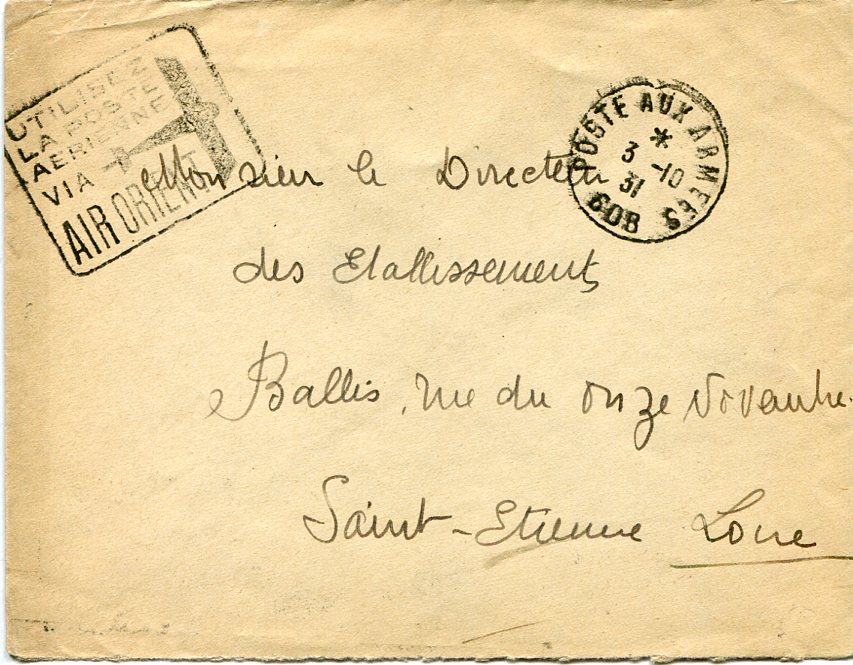 UTILISEZ
LA POSTE
AERIENNE
VIA
AIR ORIENT
POSTE AUX ARMEES
*
3 -10
31
608
Monsieur le Directeur
des Etablissements
Ballis, rue du onze Novembre.
Saint-Etienne Loire